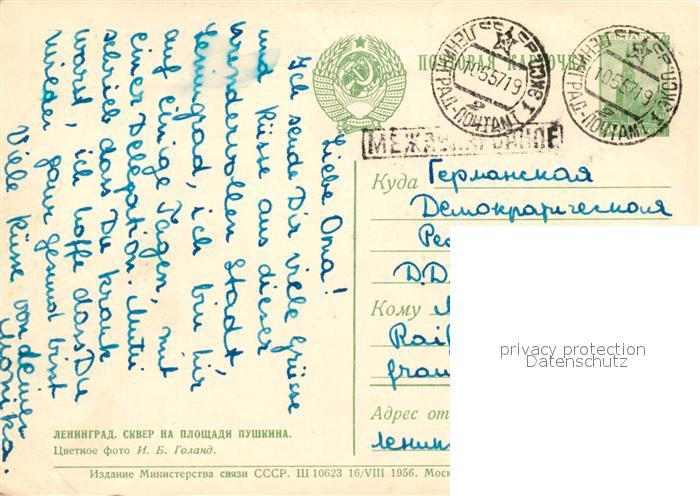 Liebe Oma!
Ich sende Dir viele Grüsse
und Küsse aus dieser
wundervollen Stadt
Leningrad, ich bin hir
auf einige Tagen, mit
einer Delegation. Mutti
schrieb das Du krank
warst, ich hoffe dass Du
wieder ganz gesund bist
Viele Küsse von deiner
Monika.
ПОЧТОВАЯ КАРТОЧКА
ЛЕНИНГРАД-ПОЧТАМТ 1 ЭКСП.
1055719
2
ЛЕНИНГРАД-ПОЧТАМТ 1 ЭКСП.
1055719
2
МЕЖДУНАРОДНОЕ
Куда Германская
Демократическая
Рес
D.D
Кому
Raif
frau
Адрес от
ленин
privacy protection
Datenschutz
ЛЕНИНГРАД. СКВЕР НА ПЛОЩАДИ ПУШКИНА.
Цветное фото И. Б. Голанд.
Издание Министерства связи СССР. Ш 10623 16/VIII 1956. Моск